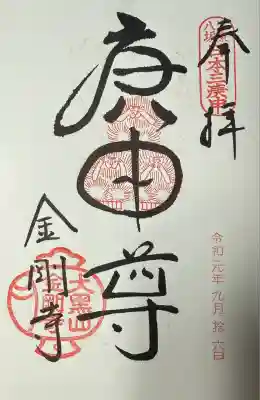 八坂
日本三庚申
奉拝
令和元年 九月 拾六日
庚申尊
金剛寺
大黒山
金剛寺